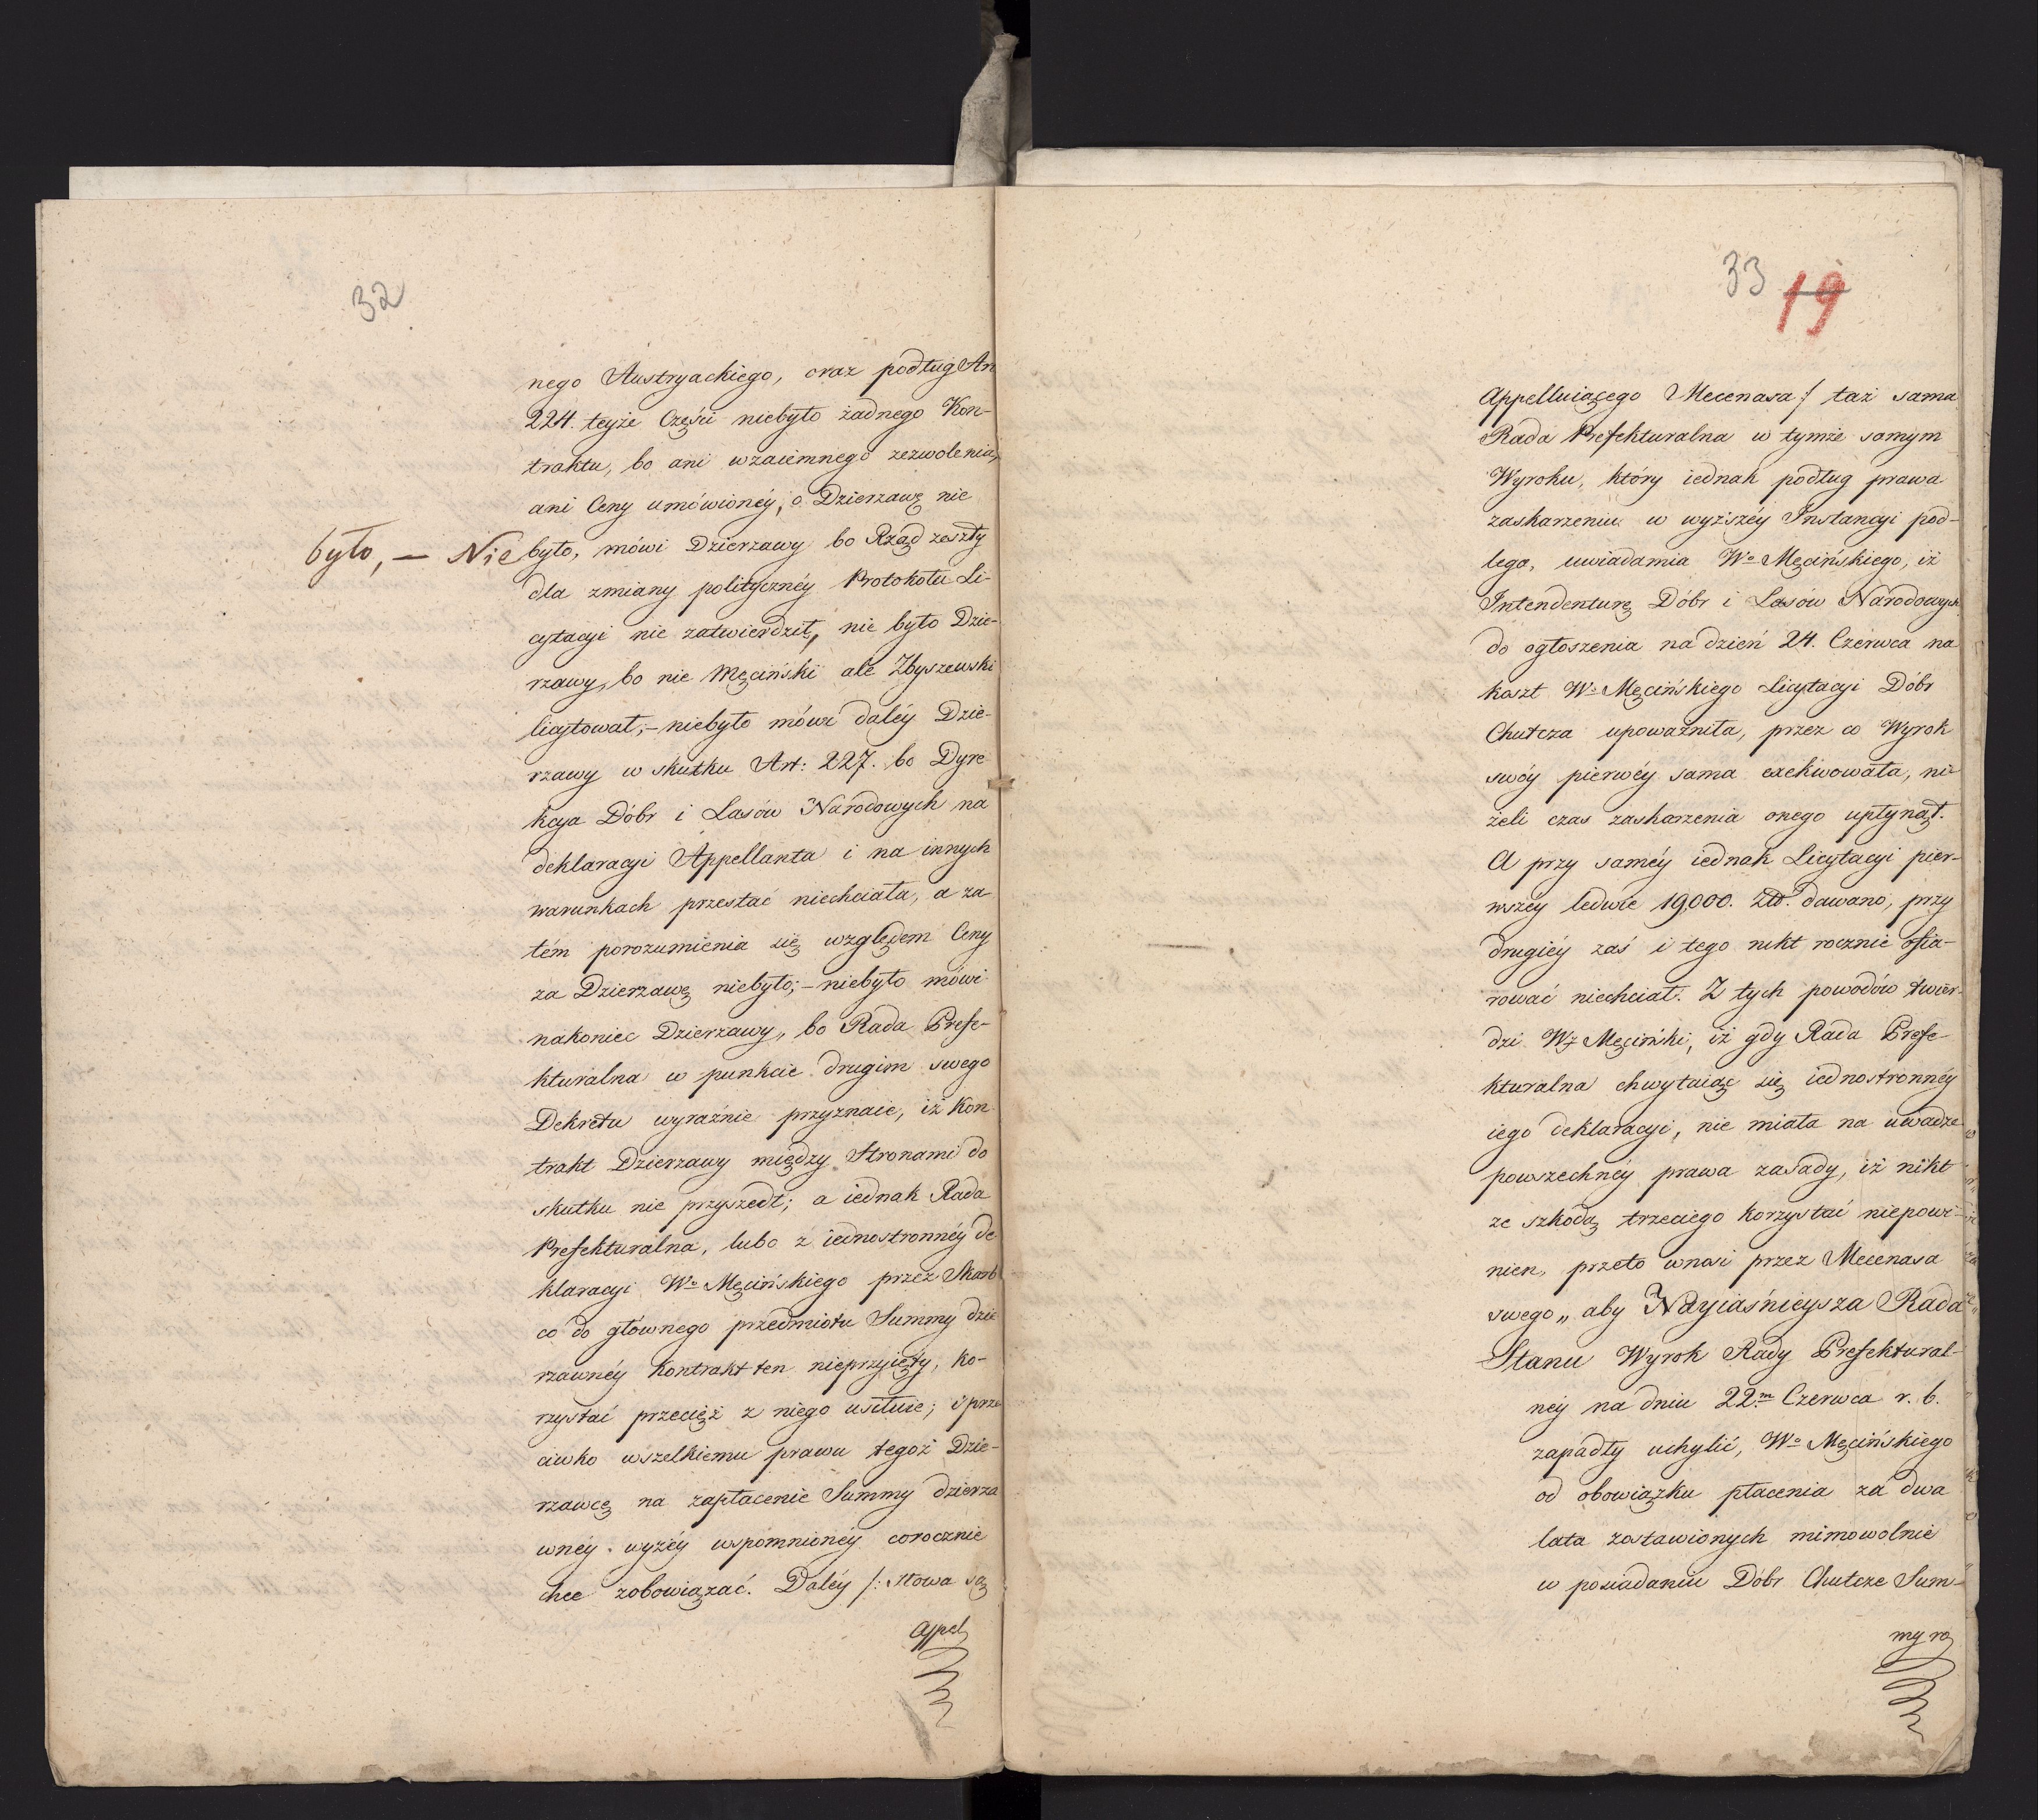 32
nego Austryackiego, oraz podług Ar
224. teyże Części niebyło żadnego Kon-
traktu, bo ani wzaiemnego zezwolenia,
ani Ceny umówionéy, o Dzierzawę nie
było, — Nie było, mówi Dzierzawy bo Rząd zeszły
dla zmiany polityczney Protokołu Li-
cytacyi nie zatwierdził, nie było Dzie-
rzawy, bo nie Męciński ale Zbyszewski
licytował; – niebyło mówi daléy Dzie-
rzawy w skutku Art: 227. bo Dyre
kcya Dóbr i Lasów Narodowych na
deklaracyi Appellanta i na innych
warunkach przestać niechciała, a za
tém porozumienia się względem Ceny
za Dzierzawę niebyło; – niebyło mówi
nakoniec Dzierzawy, bo Rada Prefe-
kturalna w punkcie drugim swego
Dekretu wyraźnie przyznaie, iż Kon
trakt Dzierzawy między Stronami do
skutku nie przyszedł; a iednak Rada
Prefekturalna, lubo z iednostronnéy de
klaracyi Wo Męcińskiego przez Skarb
co do głównego przedmiotu Summy dzie
rzawnéy Kontrakt ten nieprzyięty, ko-
rzystać przecięż z niego usiłuie; i prze
ciwko wszelkiemu prawu tegoż Dzie-
rzawcę na zapłacenie Summy dzierza
wnéy wyżéy wspomnionéy corocznie
chce zobowiązać. Daléy /: Słowa są
Appel
33 19
Appelluiącego Mecenasa :/ taż sama
Rada Prefekturalna w tymże samym
Wyroku, który iednak podług prawa
zaskarzeniu w wyższéy Instancyi pod-
lega, uwiadamia Wo Męcińskiego, iż
Intendenturę Dóbr i Lasów Narodowych
do ogłoszenia na dzień 24. Czerwca na
koszt Wo Męcińskiego Licytacyi Dóbr
Chutcza upoważniła, przez co Wyrok
swóy pierwéy sama exekwowała, ni
żeli czas zaskarzenia onego upłynął.
A przy saméy iednak Licytacyi pier-
wszéy ledwie 19,000. Złł. dawano, przy
drugiéy zaś i tego nikt rocznie ofia-
rować niechciał. Z tych powodów twier-
dzi Wy Męciński, iż gdy Rada Prefe-
kturalna chwytaiąc się iednostronnéy
iego deklaracyi, nie miała na uwadze
powszechnéy prawa zasady, iż nikt
ze szkodą trzeciego korzystać niepowi-
nien, przeto wnosi przez Mecenasa
swego „ aby Nayiaśnieysza Rada
Stanu Wyrok Rady Prefektural-
néy na dniu 22m Czerwca r. b.
zapadły uchylić, Wo Męcińskiego
od obowiązku płacenia za dwa
lata zostawionych mimowolnie
w posiadaniu Dóbr Chutcze Sum-
my ro